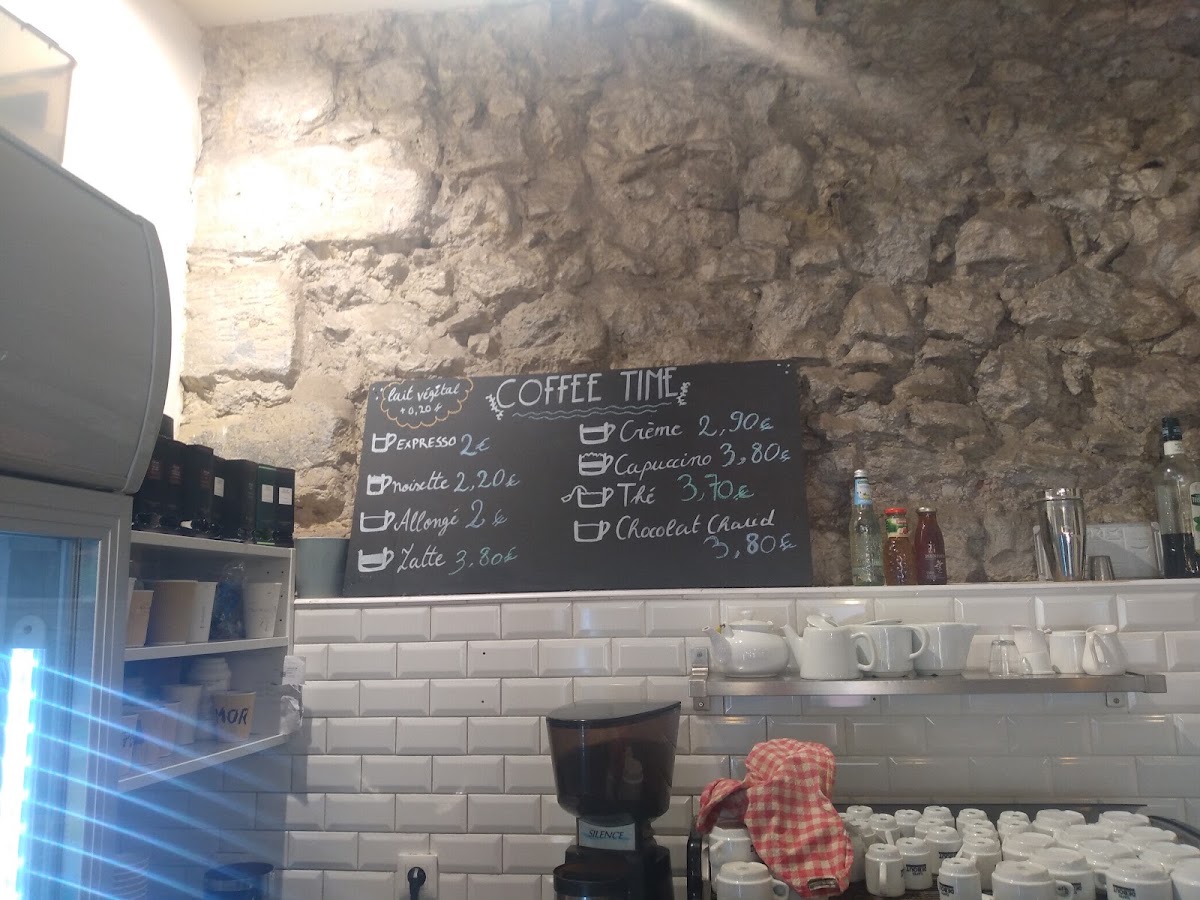 lait végétal
+ 0,20€
COFFEE TIME
EXPRESSO 2€
noisette 2,20€
Allongé 2€
Latte 3,80€
Crème 2,90€
Capuccino 3,80€
Thé 3,70€
Chocolat Chaud
3,80€
MOR
SILENCE